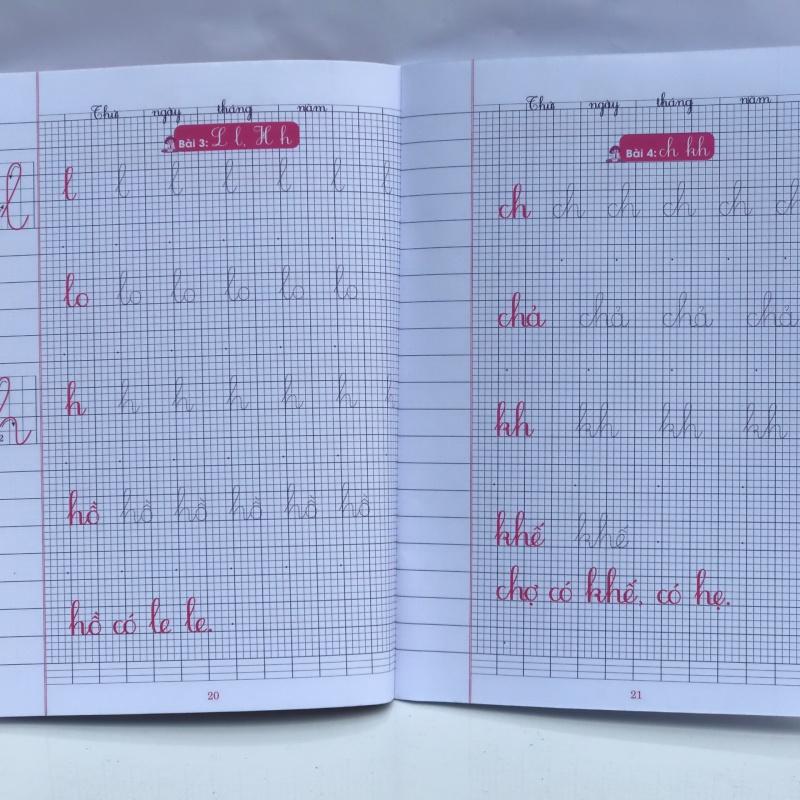 Thứ ngày tháng năm
Bài 3: L l, H h
l l l l l l l
lo lo lo lo lo lo
h h h h h h h
hồ hồ hồ hồ hồ hồ
hồ có le le.
20
Thứ ngày tháng năm
Bài 4: ch kh
ch ch ch ch ch ch
chả chả chả chả
kh kh kh kh
khế khế
chợ có khế, có hẹ.
21